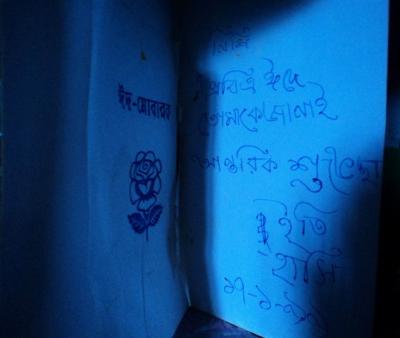 ঈদ-মোবারক
পবিত্র ঈদে
তোমাকে জানাই
আন্তরিক শুভেচ্ছা
ইতি
হাসি